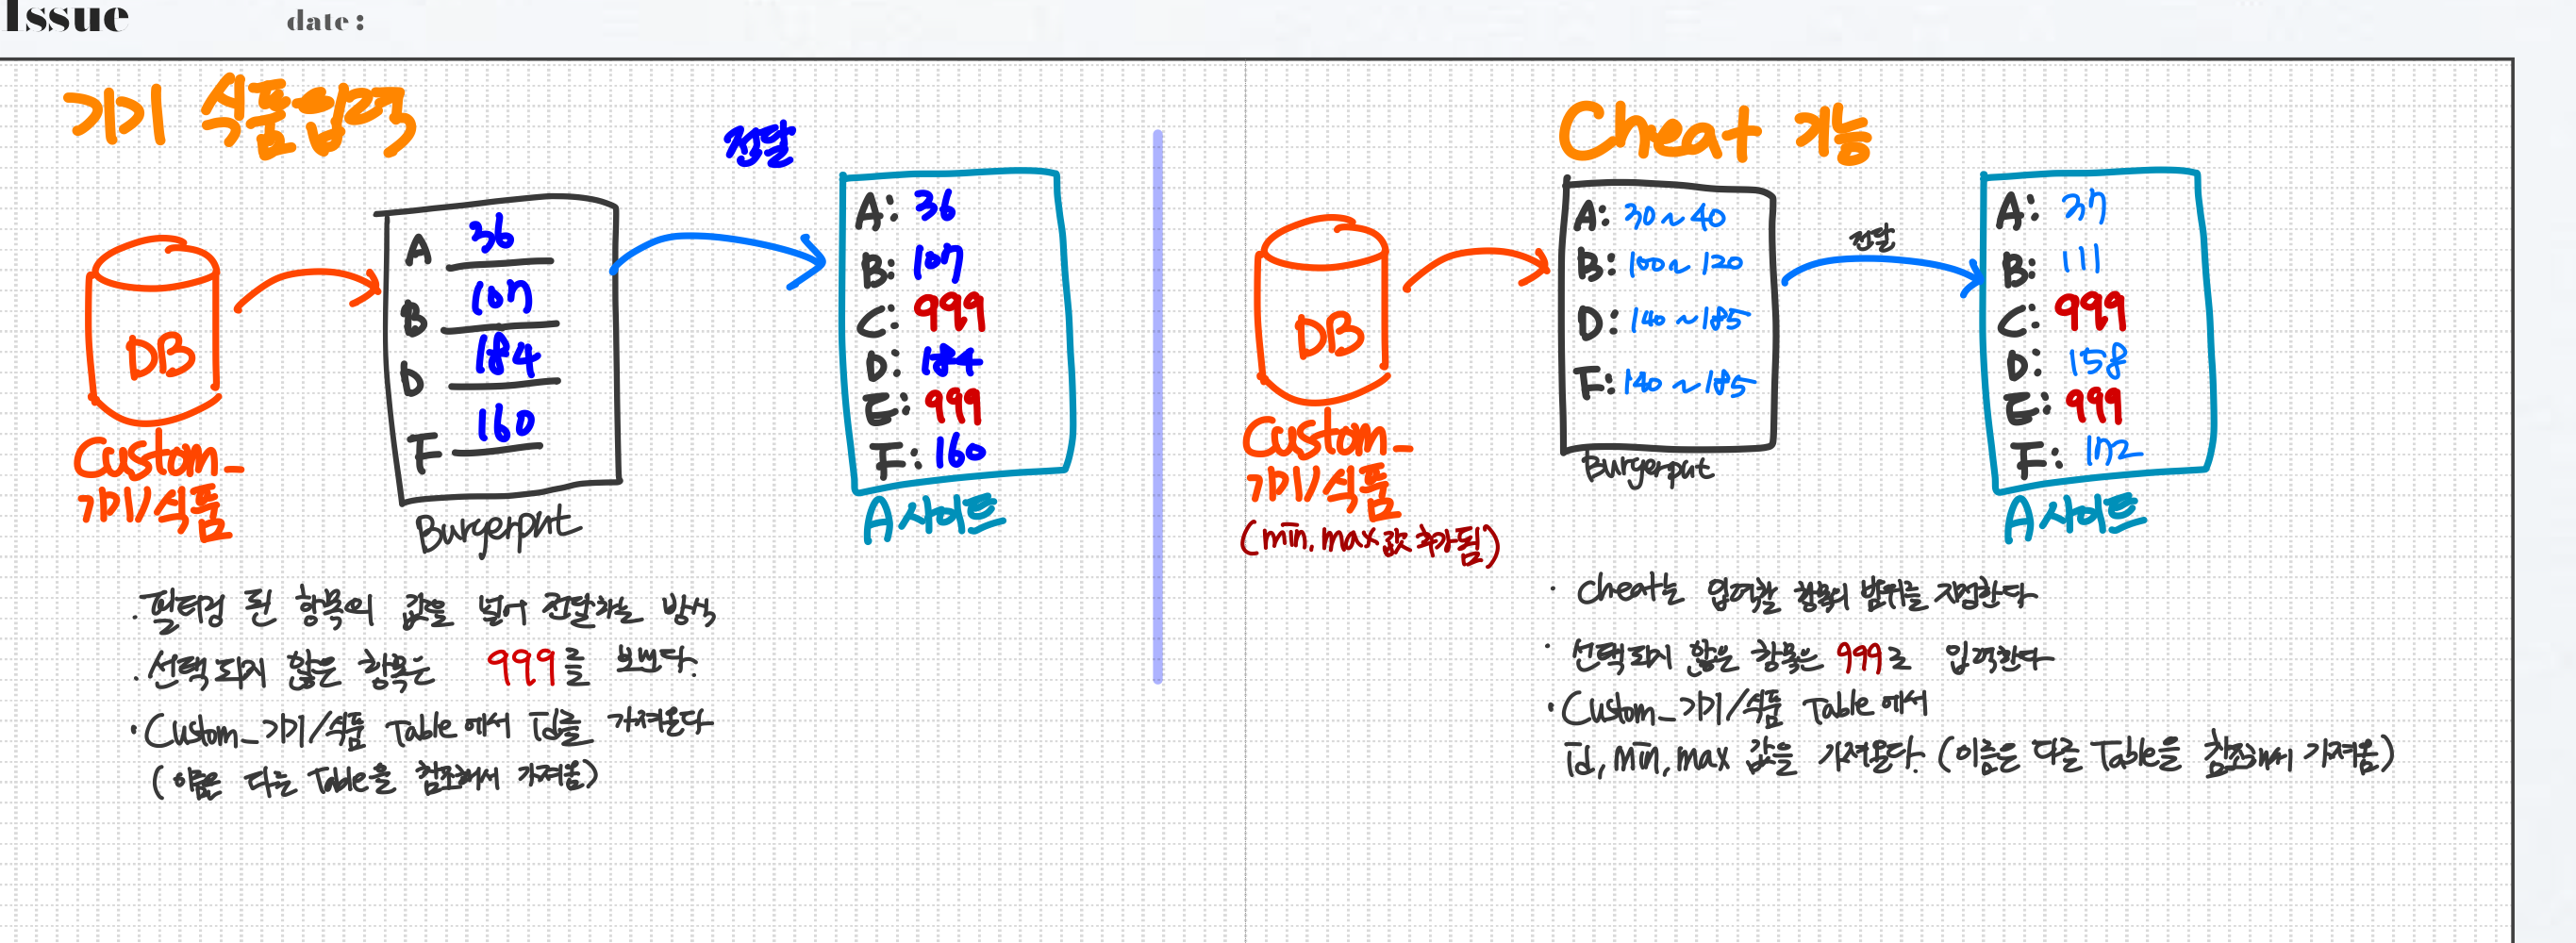 Issue
date:
기기 식품입력
전달
DB
Custom_
기기/식품
A 36
B 107
D 184
F 160
Burgerput
A: 36
B: 107
C: 999
D: 184
E: 999
F: 160
A사이트
· 필터링 된 항목의 값을 넣어 전달하는 방식
· 선택되지 않은 항목은 999를 보낸다.
· Custom_기기/식품 Table에서 id를 가져온다
(이름은 다른 Table을 참조해서 가져옴)
Cheat 기능
DB
Custom_
기기/식품
(min, max값 추가됨)
A: 30~40
B: 100~120
D: 140~185
F: 140~185
Burgerput
전달
A: 37
B: 111
C: 999
D: 158
E: 999
F: 172
A사이트
· Cheat는 입력할 항목의 범위를 지정한다
· 선택되지 않은 항목은 999로 입력한다
· Custom_기기/식품 Table에서
id, min, max 값을 가져온다. (이름은 다른 Table을 참조해서 가져옴)